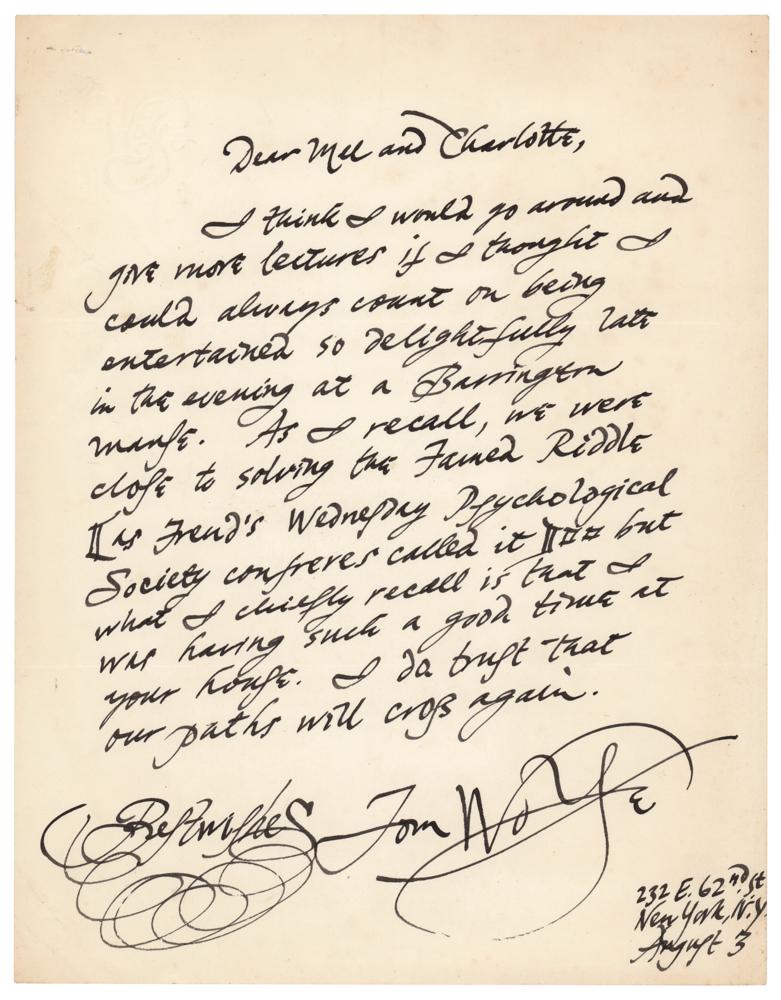 Dear Mel and Charlotte,
I think I would go around and
give more lectures if I thought I
could always count on being
entertained so delightfully late
in the evening at a Barrington
manſe. As I recall, we were
cloſe to solving the Famed Riddle
[as Freud's Wedneſday Pſychological
Society confreres called it] but
what I chiefly recall is that I
was having such a good time at
your houſe. I do truſt that
our paths will croſs again.
Beſt wishes Tom Wolfe
232 E. 62nd St
New York, N.Y.
Auguſt 3